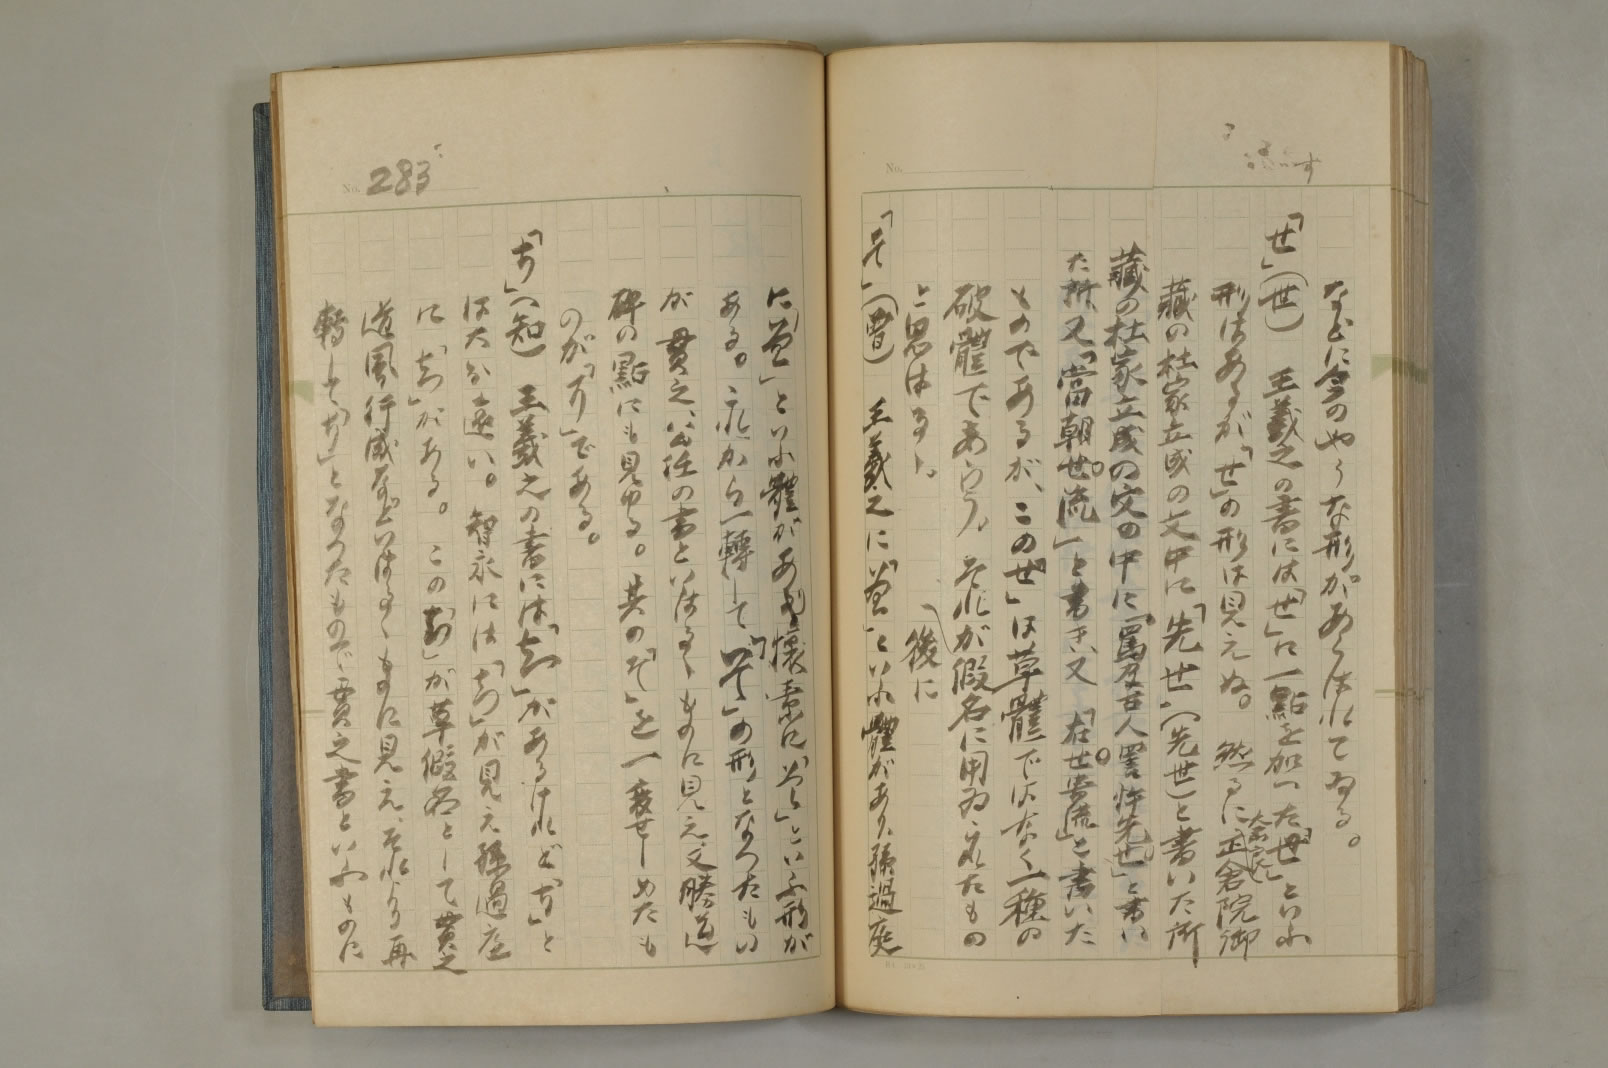 などに全のやうな形があらはれてゐる。
「せ」(世) 王羲之の書には「世」に一點を加へた「世」といふ
形はあるが「せ」の形は見えぬ。然るに奈良正倉院御
藏の杜家立成の文中に「先世」(先世)と書いた所
藏の杜家立成の文の中に「罵及古人署忤先世」と書い
た所又「當朝世流」と書き、又「在世貴流」と書いた
ものであるが、この「せ」は草體ではなく一種の
破體であらう。それが假名に用ゐられたもの
と思はるゝ。
後に
「そ」(曽) 王羲之に「曽」といふ體があり、孫過庭
No.
に「曽」といふ體があり、懷素に「曽」といふ形が
ある。これから一轉して「そ」の形となつたもの
が貫之、公任の書といはるゝものに見え、又勝道
碑の點にも見ゆる。其の「そ」を一變せしめたも
のが「そ」である。
「ち」(知) 王羲之の書には「知」があるけれど「ち」と
は大分遠い。智永には「知」が見え孫過庭
に「知」がある。この「知」が草假名として貫之
道風行成などいはるゝものに見え、それより再
轉して「ち」となつたもので貫之書といふものに
No. 283